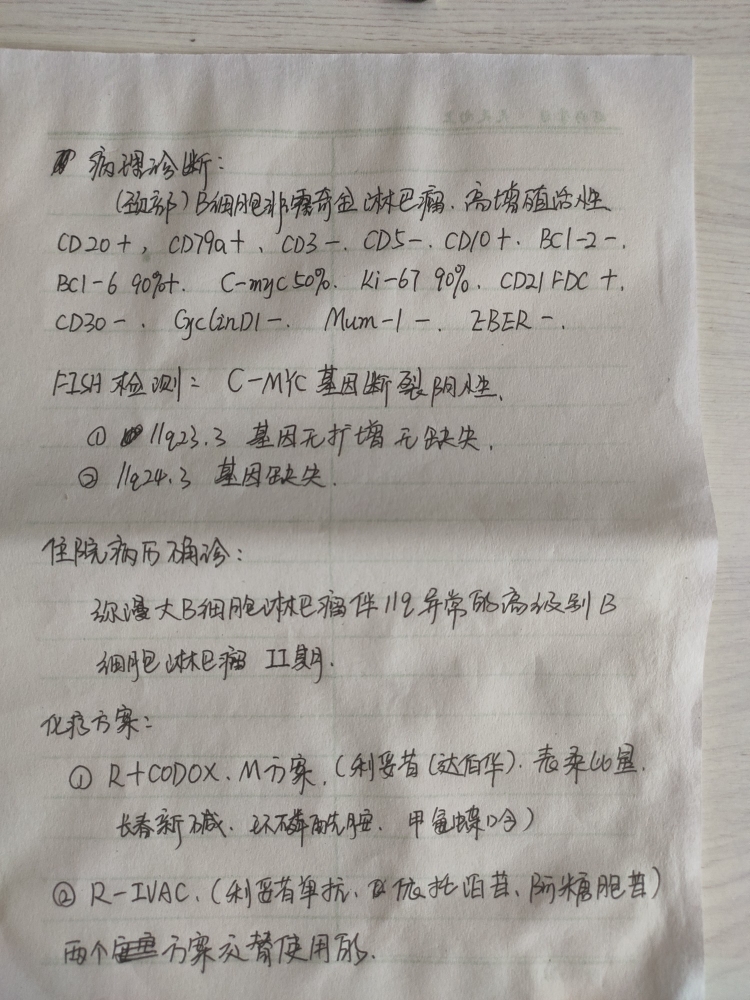 病理诊断：
(颈部)B细胞非霍奇金淋巴瘤.高增殖活性
CD20+, CD79a+、CD3-. CD5-. CD10+. BCl-2-.
BCl-6 90%+. C-myc50%. Ki-67 90%. CD21FDC+.
CD30-. CyclinD1-. Mum-1 -. EBER-.
FISH检测： C-MYC基因断裂阴性.
① 11q23.3 基因无扩增无缺失.
② 11q24.3 基因缺失.
住院病历确诊：
弥漫大B细胞淋巴瘤伴11q异常的高级别B
细胞淋巴瘤 II期.
化疗方案：
① R+CODOX.M方案.(利妥昔(达伯华).表柔比星.
长春新碱.环磷酰胺.甲氨蝶呤)
② R-IVAC.(利妥昔单抗、依托泊苷、阿糖胞苷)
两个方案交替使用的.